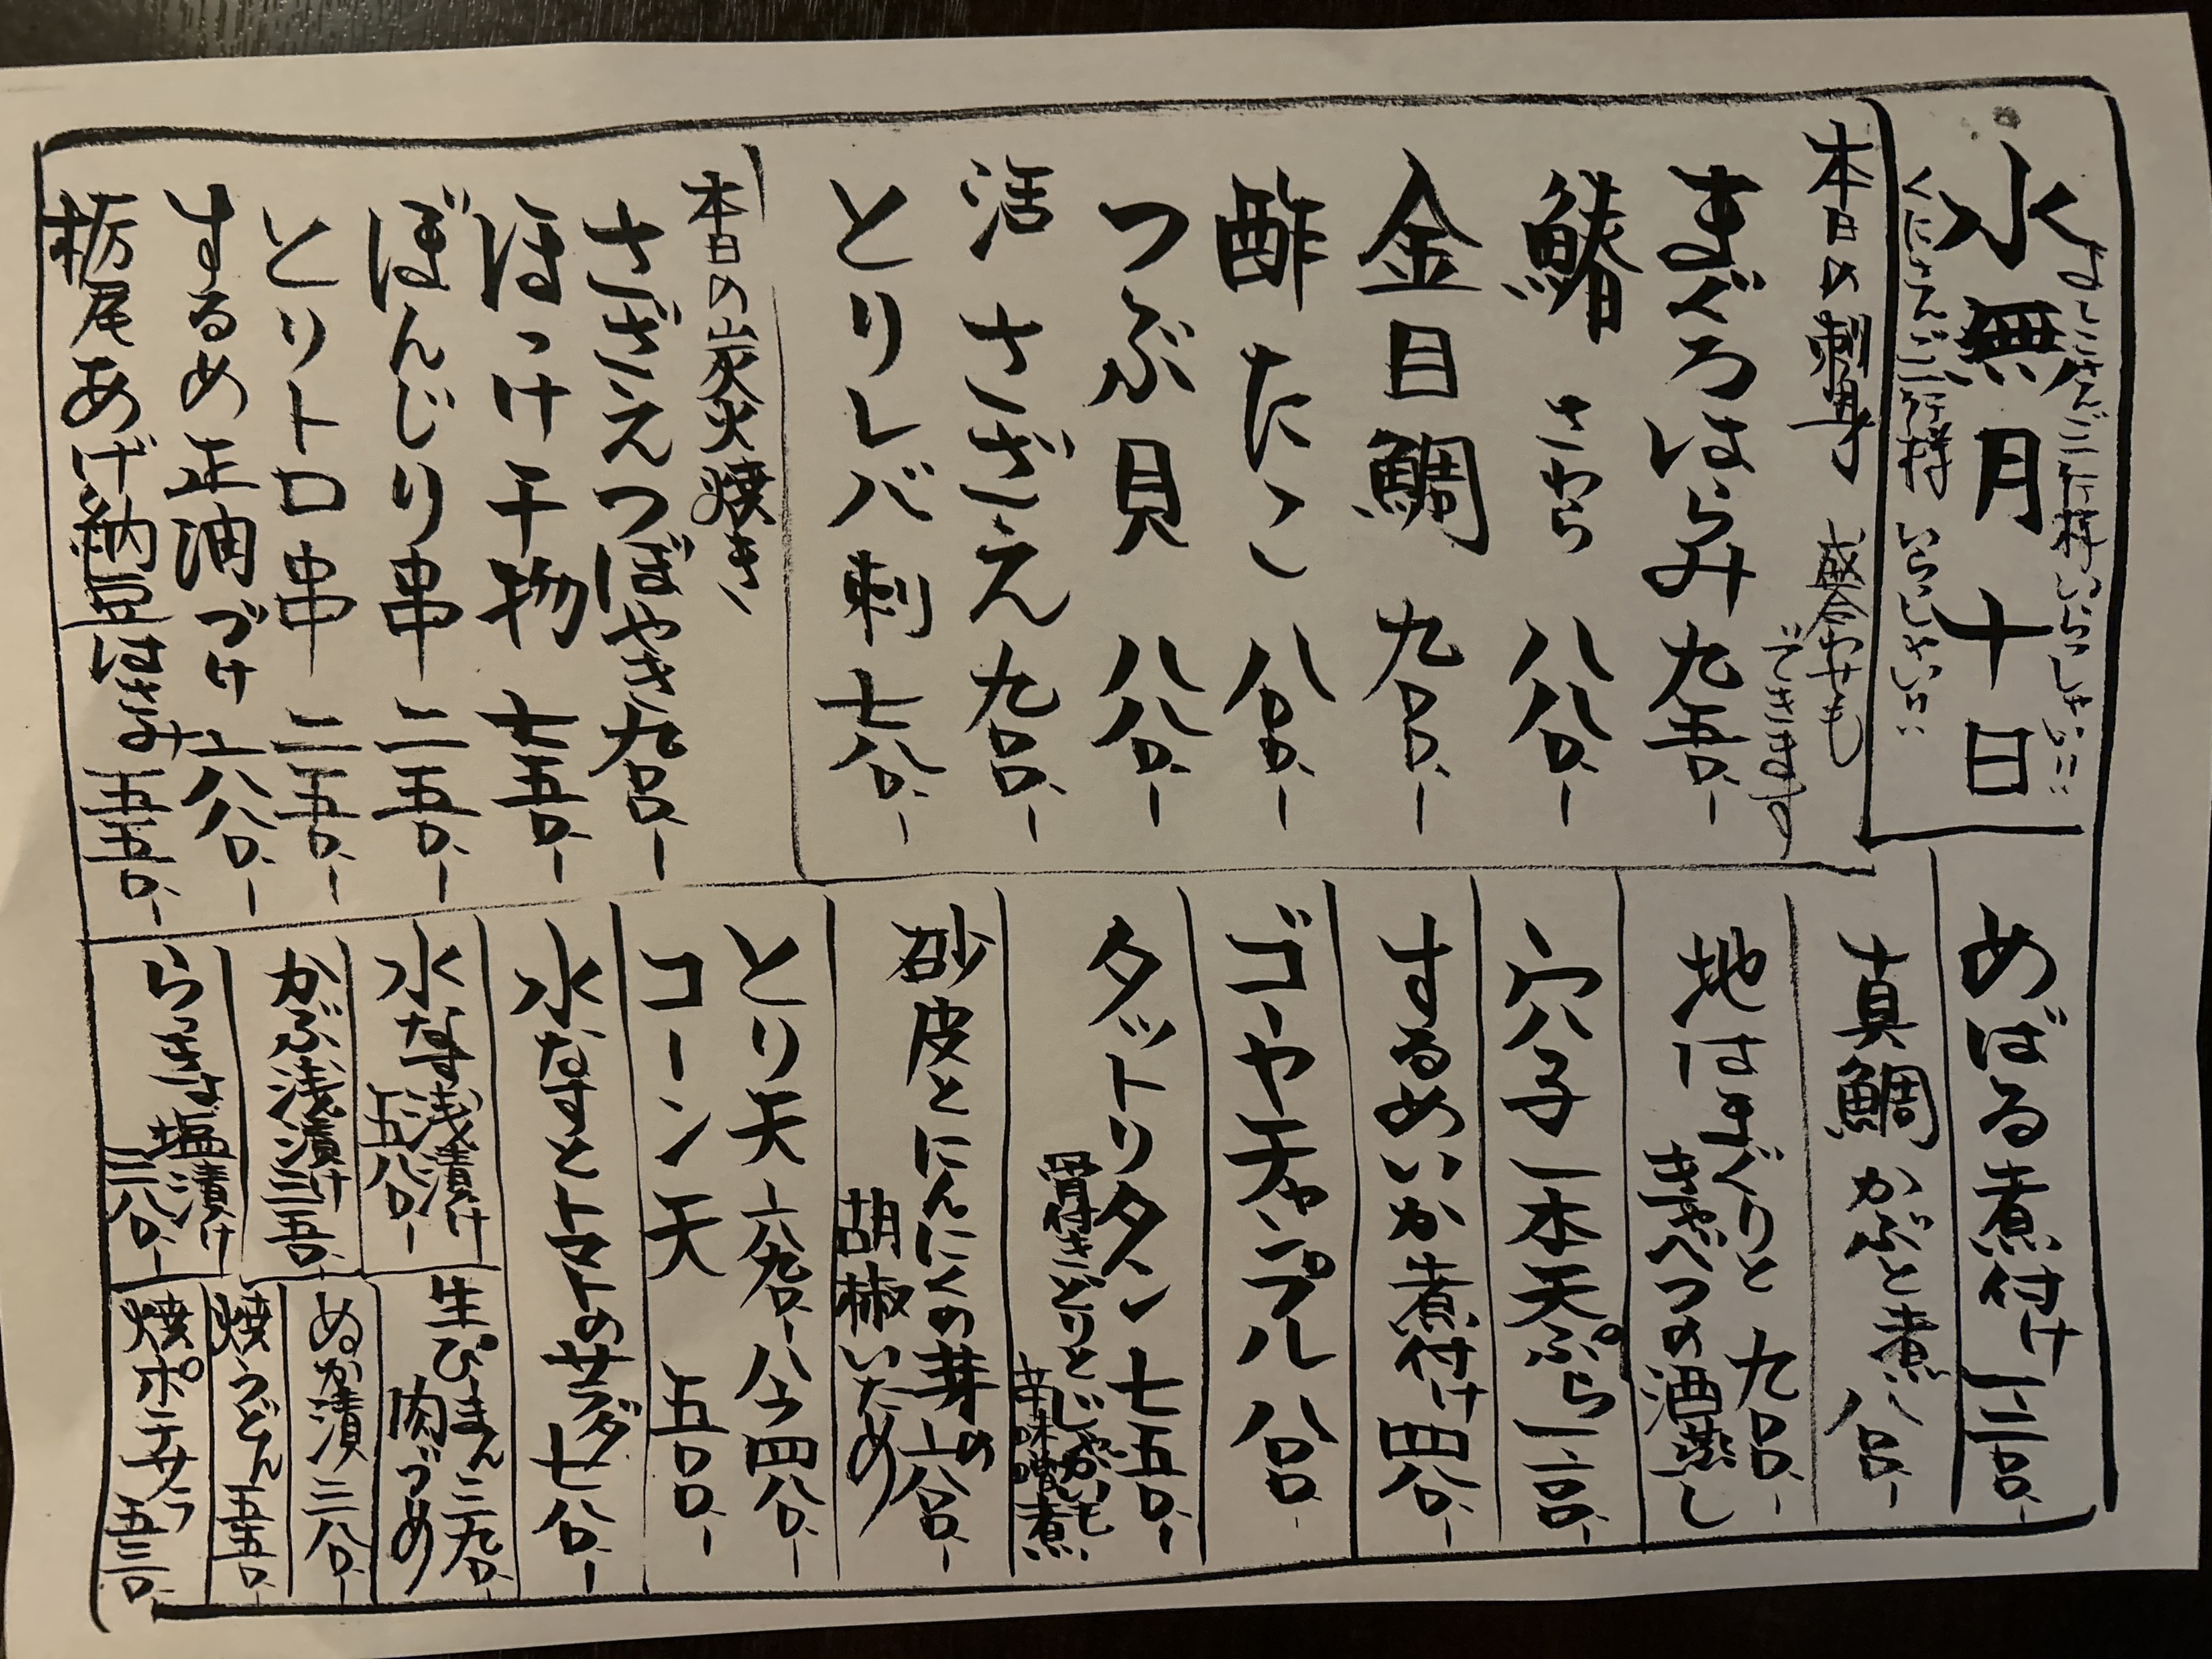 よしこさんご一行様いらっしゃい!!
水無月十日
くにさんご一行様 いらっしゃい!!
本日の刺身 盛合わせも
できます
まぐろはらみ 九五〇、ー
鰆 さわら 八八〇、ー
金目鯛 九〇〇、ー
酢たこ 八〇〇、ー
つぶ貝 八八〇、ー
活さざえ 九〇〇、ー
とりレバ刺 七八〇、ー
本日の炭火焼き
さざえつぼやき 九〇〇、ー
ほっけ干物 七五〇、ー
ぼんじり串 二五〇、ー
とりトロ串 二五〇、ー
するめ正油づけ 六八〇、ー
栃尾あげ納豆はさみ 五五〇、ー
めばる煮付け 一三〇〇、ー
真鯛かぶと煮 八〇〇、ー
地はまぐりと 九〇〇、ー
きゃべつの酒蒸し
穴子一本天ぷら 一二〇〇、ー
するめいか煮付け 四八〇、ー
ゴーヤチャンプル 八〇〇、ー
タットリタン 七五〇、ー
骨付きどりとじゃがいも
辛味噌煮
砂皮とにんにくの芽の 六八〇、ー
胡椒いため
とり天 六九〇、ー ハーフ四八〇、ー
コーン天 五〇〇、ー
水なすとトマトのサラダ 七八〇、ー
水なす浅漬け
五八〇、ー
かぶ浅漬け 三五〇、ー
らっきょ塩漬け
三八〇、ー
生ぴーまん 三九〇、ー
肉づめ
ぬか漬 三八〇、ー
焼うどん 五五〇、ー
焼ポテサラ 五三〇、